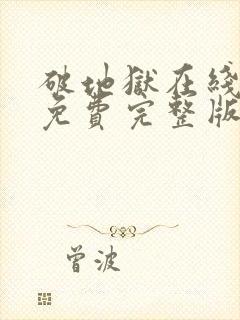 破地獄在綫
免費完整版
曾波